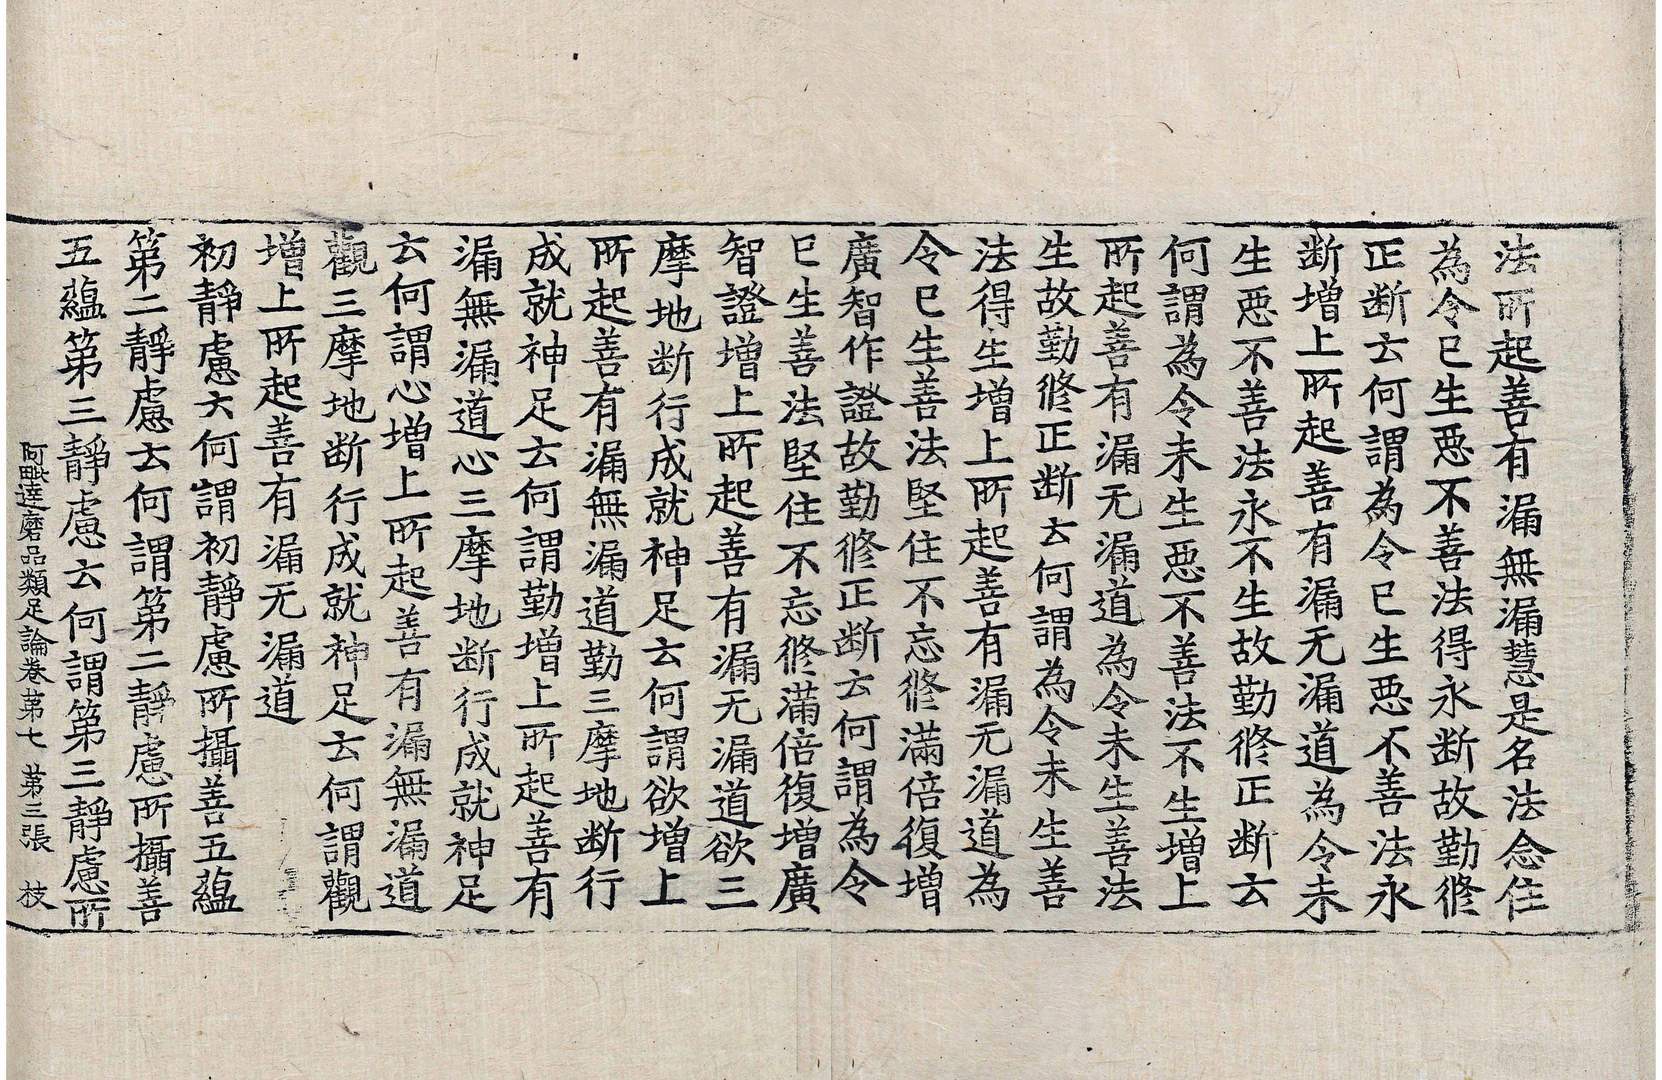 法所起善有漏無漏慧是名法念住
為令已生惡不善法得永断故勤修
正断云何謂為令已生惡不善法永
断增上所起善有漏无漏道為令未
生惡不善法永不生故勤修正断云
何謂為令未生惡不善法不生增上
所起善有漏无漏道為令未生善法
生故勤修正断云何謂為令未生善
法得生增上所起善有漏无漏道為
令已生善法堅住不忘修滿倍復增
廣智作證故勤修正断云何謂為令
已生善法堅住不忘修滿倍復增廣
智證增上所起善有漏无漏道欲三
摩地断行成就神足云何謂欲增上
所起善有漏無漏道勤三摩地断行
成就神足云何謂勤增上所起善有
漏無漏道心三摩地断行成就神足
云何謂心增上所起善有漏無漏道
觀三摩地断行成就神足云何謂觀
增上所起善有漏无漏道
初靜慮云何謂初靜慮所攝善五蘊
第二靜慮云何謂第二靜慮所攝善
五蘊第三靜慮云何謂第三靜慮所
阿毗達磨品類足論卷第七 第三張 枝